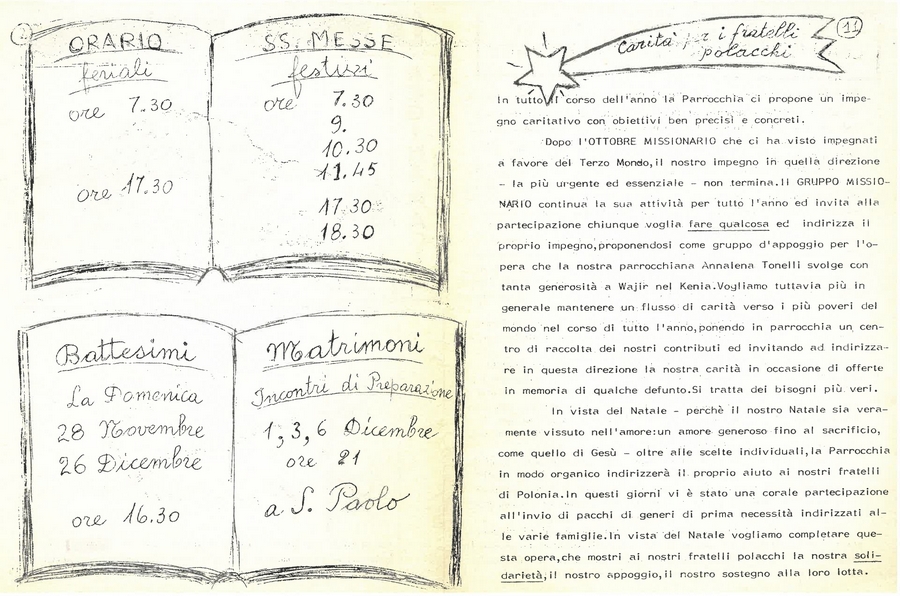 ORARIO
feriali
ore 7.30
ore 17.30
SS. MESSE
festivi
ore 7.30
9.
10.30
11.45
17.30
18.30
Battesimi
La Domenica
28 Novembre
26 Dicembre
ore 16.30
Matrimoni
Incontri di Preparazione
1, 3, 6 Dicembre
ore 21
a S. Paolo
11
Carità per i fratelli
polacchi
In tutto il corso dell'anno la Parrocchia ci propone un impe-
gno caritativo con obiettivi ben precisi e concreti.
Dopo l'OTTOBRE MISSIONARIO che ci ha visto impegnati
a favore del Terzo Mondo,il nostro impegno in quella direzione
- la più urgente ed essenziale - non termina.Il GRUPPO MISSIO-
NARIO continua la sua attività per tutto l'anno ed invita alla
partecipazione chiunque voglia fare qualcosa ed indirizza il
proprio impegno,proponendosi come gruppo d'appoggio per l'o-
pera che la nostra parrocchiana Annalena Tonelli svolge con
tanta generosità a Wajir nel Kenia.Vogliamo tuttavia più in
generale mantenere un flusso di carità verso i più poveri del
mondo nel corso di tutto l'anno,ponendo in parrocchia un cen-
tro di raccolta dei nostri contributi ed invitando ad indirizza-
re in questa direzione la nostra carità in occasione di offerte
in memoria di qualche defunto.Si tratta dei bisogni più veri.
In vista del Natale - perchè il nostro Natale sia vera-
mente vissuto nell'amore:un amore generoso fino al sacrificio,
come quello di Gesù - oltre alle scelte individuali,la Parrocchia
in modo organico indirizzerà il proprio aiuto ai nostri fratelli
di Polonia.In questi giorni vi è stato una corale partecipazione
all'invio di pacchi di generi di prima necessità indirizzati al-
le varie famiglie.In vista del Natale vogliamo completare que-
sta opera,che mostri ai nostri fratelli polacchi la nostra soli-
darietà,il nostro appoggio,il nostro sostegno alla loro lotta.